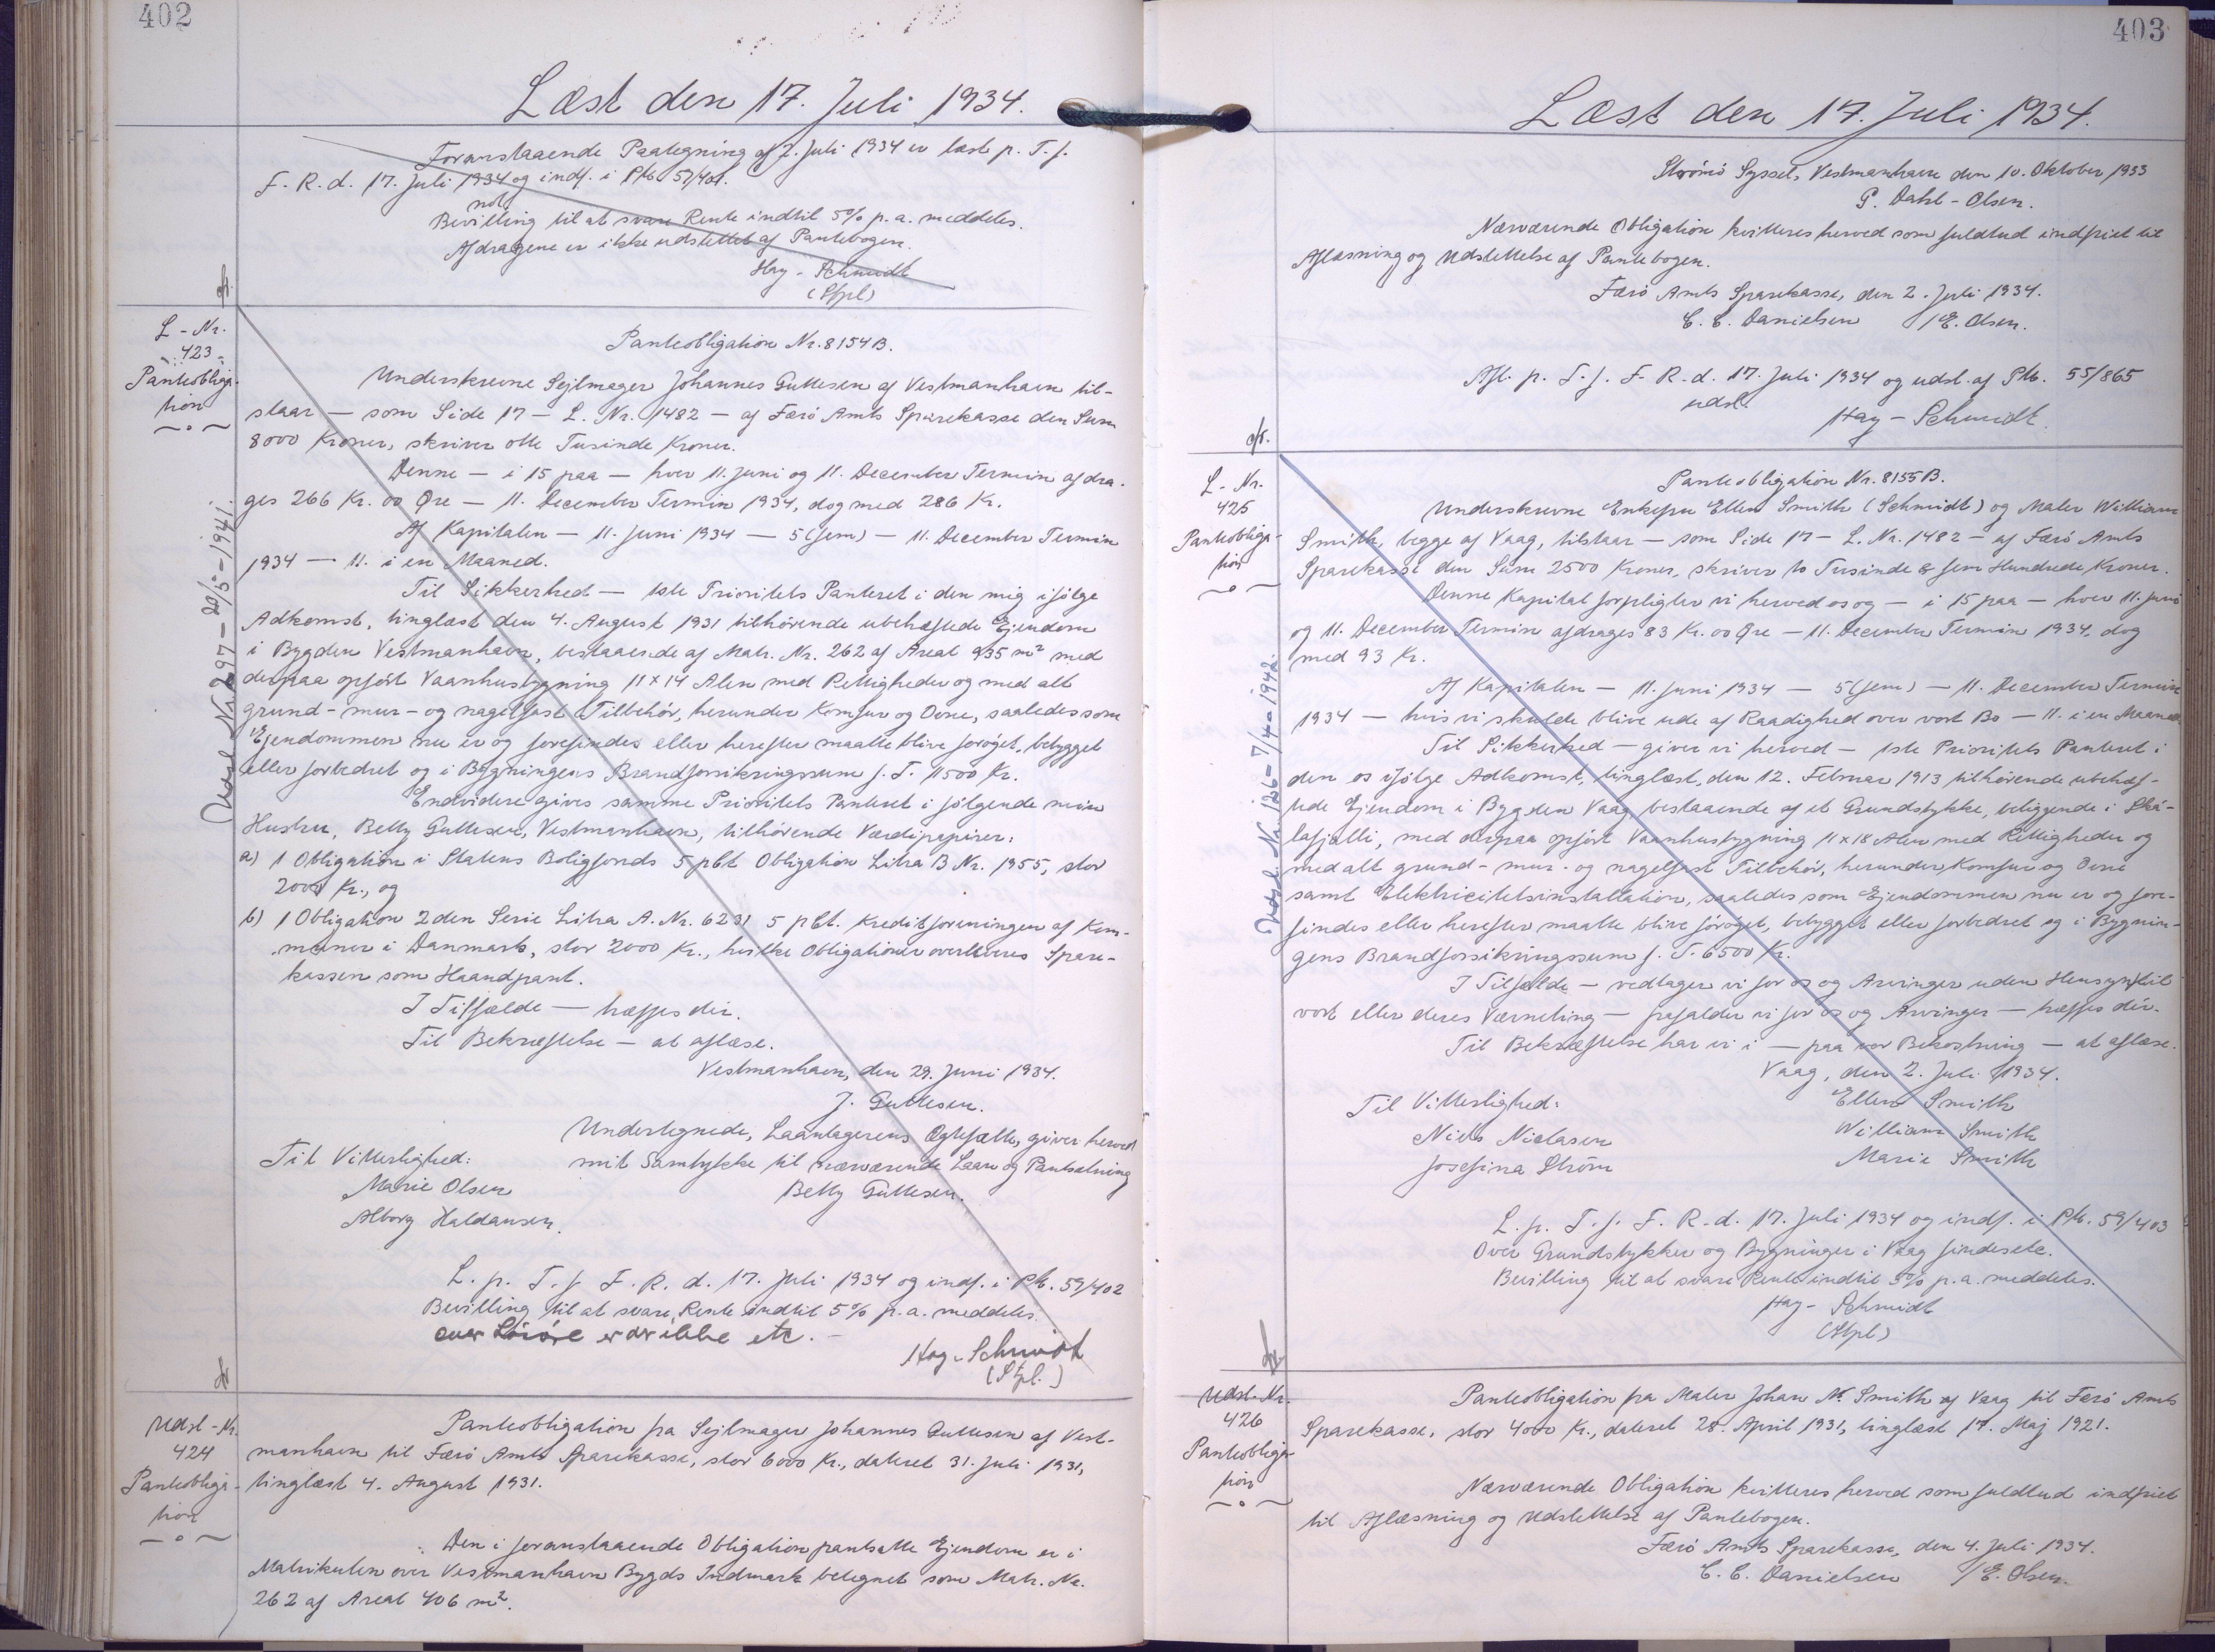 402
Læst den 17. Juli 1934.
Foranstaaende Paategning af 2. Juli 1934 er læst p. T. f.
F. R. d. 17. Juli 1934 og indf. i Pb. 59/401.
not
Bevilling til at svare Rente indtil 5% p. a. meddeles.
Afdragene er ikke udslettet af Pantebogen.
Hay-Schmidt
(Stpl)
L-Nr.
423
Panteobliga-
tion
Udsl. Nr. 297 - 20/5 - 1941.
Panteobligation Nr. 8154B.
Underskrevne Sejlmager Johannes Guttesen af Vestmanhavn til-
staar — som Side 17 — L. Nr. 1482 — af Færö Amts Sparekasse den Sum
8000 Kroner, skriver otte Tusinde Kroner.
Denne — i 15 paa — hver 11. Juni og 11. December Termin afdra-
ges 266 Kr. 00 Øre — 11. December Termin 1934, dog med 286 Kr.
Af Kapitalen — 11. Juni 1934 — 5 (fem) — 11. December Termin
1934 — 11. i en Maaned.
Til Sikkerhed — 1ste Prioritets Panteret i den mig ifölge
Adkomst, tinglæst den 4. August 1931 tilhörende ubehæftede Ejendom
i Bygden Vestmanhavn, bestaaende af Matr. Nr. 262 af Areal 935 m² med
derpaa opfört Vaanhusbygning 11 x 14 Alen med Rettigheder og med alt
grund- mur- og nagelfast Tilbehör, herunder Komfur og Ovne, saaledes som
Ejendommen nu er og forefindes eller herefter maatte blive foröget, bebygget
eller forbedret og i Bygningens Brandforsikringssum f. T. 11500 Kr.
Endvidere gives samme Prioritets Panteret i følgende min
Hustru, Betty Guttesen, Vestmanhavn, tilhörende Værdipapirer:
a) 1 Obligation i Statens Boligfonds 5 pCt Obligation Litra B Nr. 1955, stor
2000 Kr., og
b) 1 Obligation 2den Serie Litra A. Nr. 6231 5 pCt. Kreditforeningen af Kom-
muner i Danmark, stor 2000 Kr., hvilke Obligationer overleveres Spare-
kassen som Haandpant.
I Tilfælde — træffes dér.
Til Bekræftelse — at aflæse.
Vestmanhavn, den 29. Juni 1934.
J. Guttesen.
Undertegnede, Laantagerens Ægtefælle, giver herved
Til Vitterlighed: mit Samtykke til nærværende Laan og Pantsætning
Marie Olsen Betty Guttesen.
Alborg Haldansen.
L. p. T. f. F. R. d. 17. Juli 1934 og indf. i Pb. 59/402
Bevilling til at svare Rente indtil 5% p. a. meddeles.
over er der ikke etc. -
Hay-Schmidt
(Stpl.)
Udsl-Nr.
424
Panteobliga-
tion
Panteobligation fra Sejlmager Johannes Guttesen af Vest-
manhavn til Færö Amts Sparekasse, stor 6000 Kr., dateret 31. Juli 1931,
tinglæst 4. August 1931.
Den i foranstaaende Obligation pantsatte Ejendom er i
Matrikulen over Vestmanhavn Bygds Indmark betegnet som Matr. Nr.
262 af Areal 406 m².
403
Læst den 17. Juli 1934.
Strömö Syssel, Vestmanhavn den 10. Oktober 1933
P. Dahl-Olsen.
Nærværende Obligation kvitteres herved som fuldtud indfriet til
Aflæsning og Udslettelse af Pantebogen.
Færö Amts Sparekasse, den 2. Juli 1934.
C. C. Danielsen /E. Olsen.
Afl. p. T. f. F. R. d. 17. Juli 1934 og udsl. af Pb. 55/865
udsl.
Hay-Schmidt.
L-Nr.
425
Panteobliga-
tion
Udsl. Nr. 126 - 7/4 - 1942.
Panteobligation Nr. 8155B.
Underskrevne Enkefru Ellen Smith (Schmidt) og Maler William
Smith, begge af Vaag, tilstaar — som Side 17 — L. Nr. 1482 — af Færö Amts
Sparekasse den Sum 2500 Kroner, skriver to Tusinde & fem Hundrede Kroner.
Denne Kapital forpligter vi herved os og — i 15 paa — hver 11. Juni
og 11. December Termin afdrages 83 Kr. 00 Øre — 11. December Termin 1934, dog
med 93 Kr.
Af Kapitalen — 11. Juni 1934 — 5 (fem) — 11. December Termin
1934 — hvis vi skulde blive ude af Raadighed over vort Bo — 11. i en Maaned.
Til Sikkerhed — giver vi herved — 1ste Prioritets Panteret i
den os ifölge Adkomst, tinglæst, den 12. Februar 1913 tilhörende ubehæf-
tede Ejendom i Bygden Vaag, bestaaende af et Grundstykke, beliggende i Ská-
lafjalli, med derpaa opfört Vaanhusbygning 11 x 18 Alen med Rettigheder og
med alt grund- mur- og nagelfast Tilbehör, herunder Komfur og Ovne
samt Elektricitetsinstallation, saaledes som Ejendommen nu er og fore-
findes eller herefter maatte blive foröget, bebygget eller forbedret og i Bygnin-
gens Brandforsikringssum f. T. 6500 Kr.
I Tilfælde — vedtager vi for os og Arvinger uden Hensyn til
vort eller deres Værneting — frafalder vi for os og Arvinger — træffes dér.
Til Bekræftelse har vi i — paa vor Bekostning — at aflæse.
Vaag, den 2. Juli 1934.
Til Vitterlighed: Ellen Smith
Niels Niclasen William Smith
Josefina Ström Marie Smith
L. p. T. f. F. R. d. 17. Juli 1934 og indf. i Pb. 59/403
Over Grundstykker og Bygninger i Vaag findes etc.
Bevilling til at svare Rente indtil 5% p. a. meddeles.
Hay-Schmidt
(Stpl)
Udsl-Nr.
426
Panteobliga-
tion
Panteobligation fra Maler Johan M. Smith af Vaag til Færö Amts
Sparekasse, stor 4000 Kr., dateret 28. April 1931, tinglæst 17. Maj 1921.
Nærværende Obligation kvitteres herved som fuldtud indfriet
til Aflæsning og Udslettelse af Pantebogen.
Færö Amts Sparekasse, den 4. Juli 1934.
C. C. Danielsen /E. Olsen.